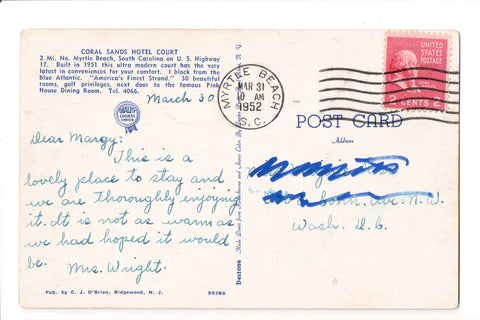 CORAL SANDS HOTEL COURT
2 Mi. No. Myrtle Beach, South Carolina on U. S. Highway
17. Built in 1951 this ultra modern court has the very
latest in conveniences for your comfort. 1 block from the
blue Atlantic. "America's Finest Strand." 30 beautiful
rooms, golf privileges, next door to the famous Pink
House Dining Room. Tel. 4066.
March 30
Dear Margy:
This is a
lovely place to stay and
we are Thoroughly enjoying
it. It is not as warm as
we had hoped it would
be.
Mrs. Wright.
Pub. by C. J. O'Brien, Ridgewood, N. J.
59386
Dextone
MYRTLE BEACH
MAR 31
10 AM
1952
S.C.
UNITED
STATES
POSTAGE
2 CENTS 2
POST CARD
Address
Ave. N.W.
Wash. D.C.